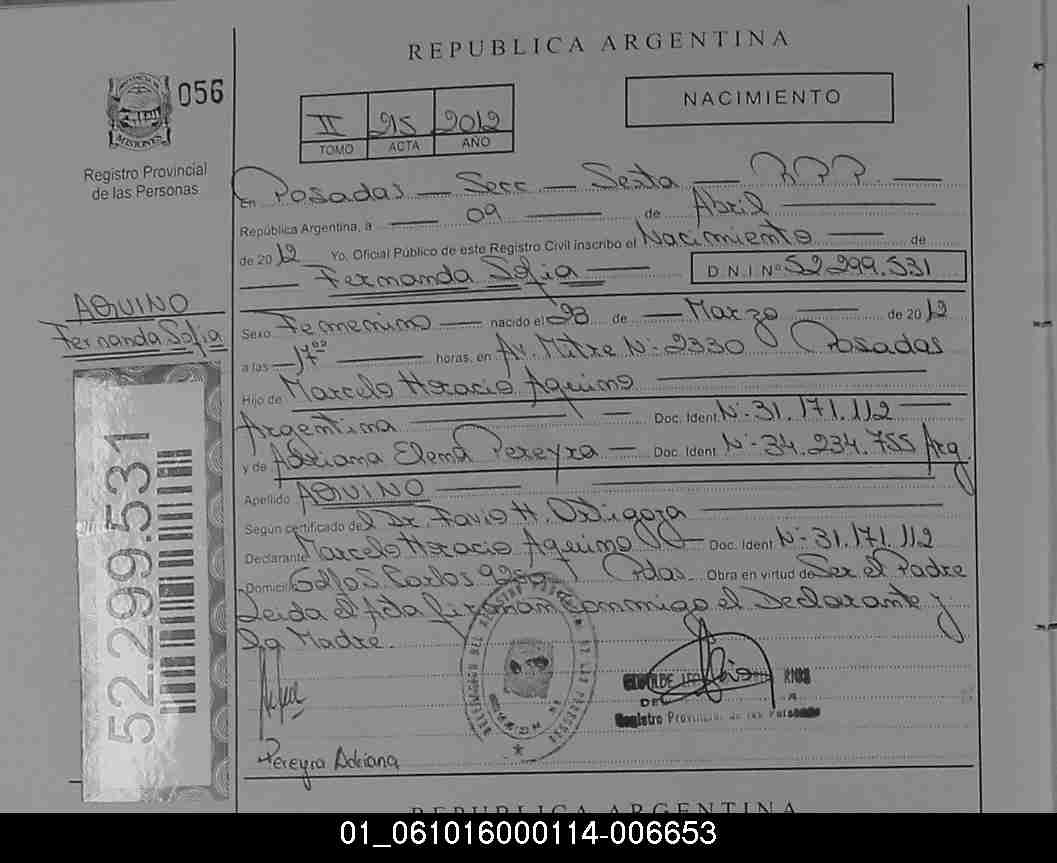 REPUBLICA ARGENTINA
056
NACIMIENTO
II 215 2012
TOMO ACTA AÑO
MISIONES
Registro Provincial
de las Personas
En Posadas — Secc — Sexta — R.P.P. —
República Argentina, a — 09 — de Abril —
de 2012 Yo, Oficial Público de este Registro Civil inscribo el Nacimiento — de
— Fernanda Sofia — D.N.I Nº 52.299.531
AQUINO
Fernanda Sofia
Sexo Femenino — nacido el 23 de — Marzo — de 2012
a las — 17 — horas, en Av. Mitre Nº 2330 Posadas
Hijo de Marcelo Horacio Aquino —
Argentina — Doc. Ident. Nº 31.171.112 —
y de Adriana Elena Pereyra — Doc. Ident. Nº 34.234.755 Arg.
Apellido AQUINO —
Según certificado del Dr. Favio H. Ortigoza —
Declarante Marcelo Horacio Aquino — Doc. Ident. Nº 31.171.112
Domicilio S. Carlos Pdas. Obra en virtud de Ser el Padre
Leida el Acta firman conmigo el Declarante y
La Madre.
RIOS
Registro Provincial de las Personas
Pereyra Adriana
52.299.531
REPUBLICA ARGENTINA
01_061016000114-006653